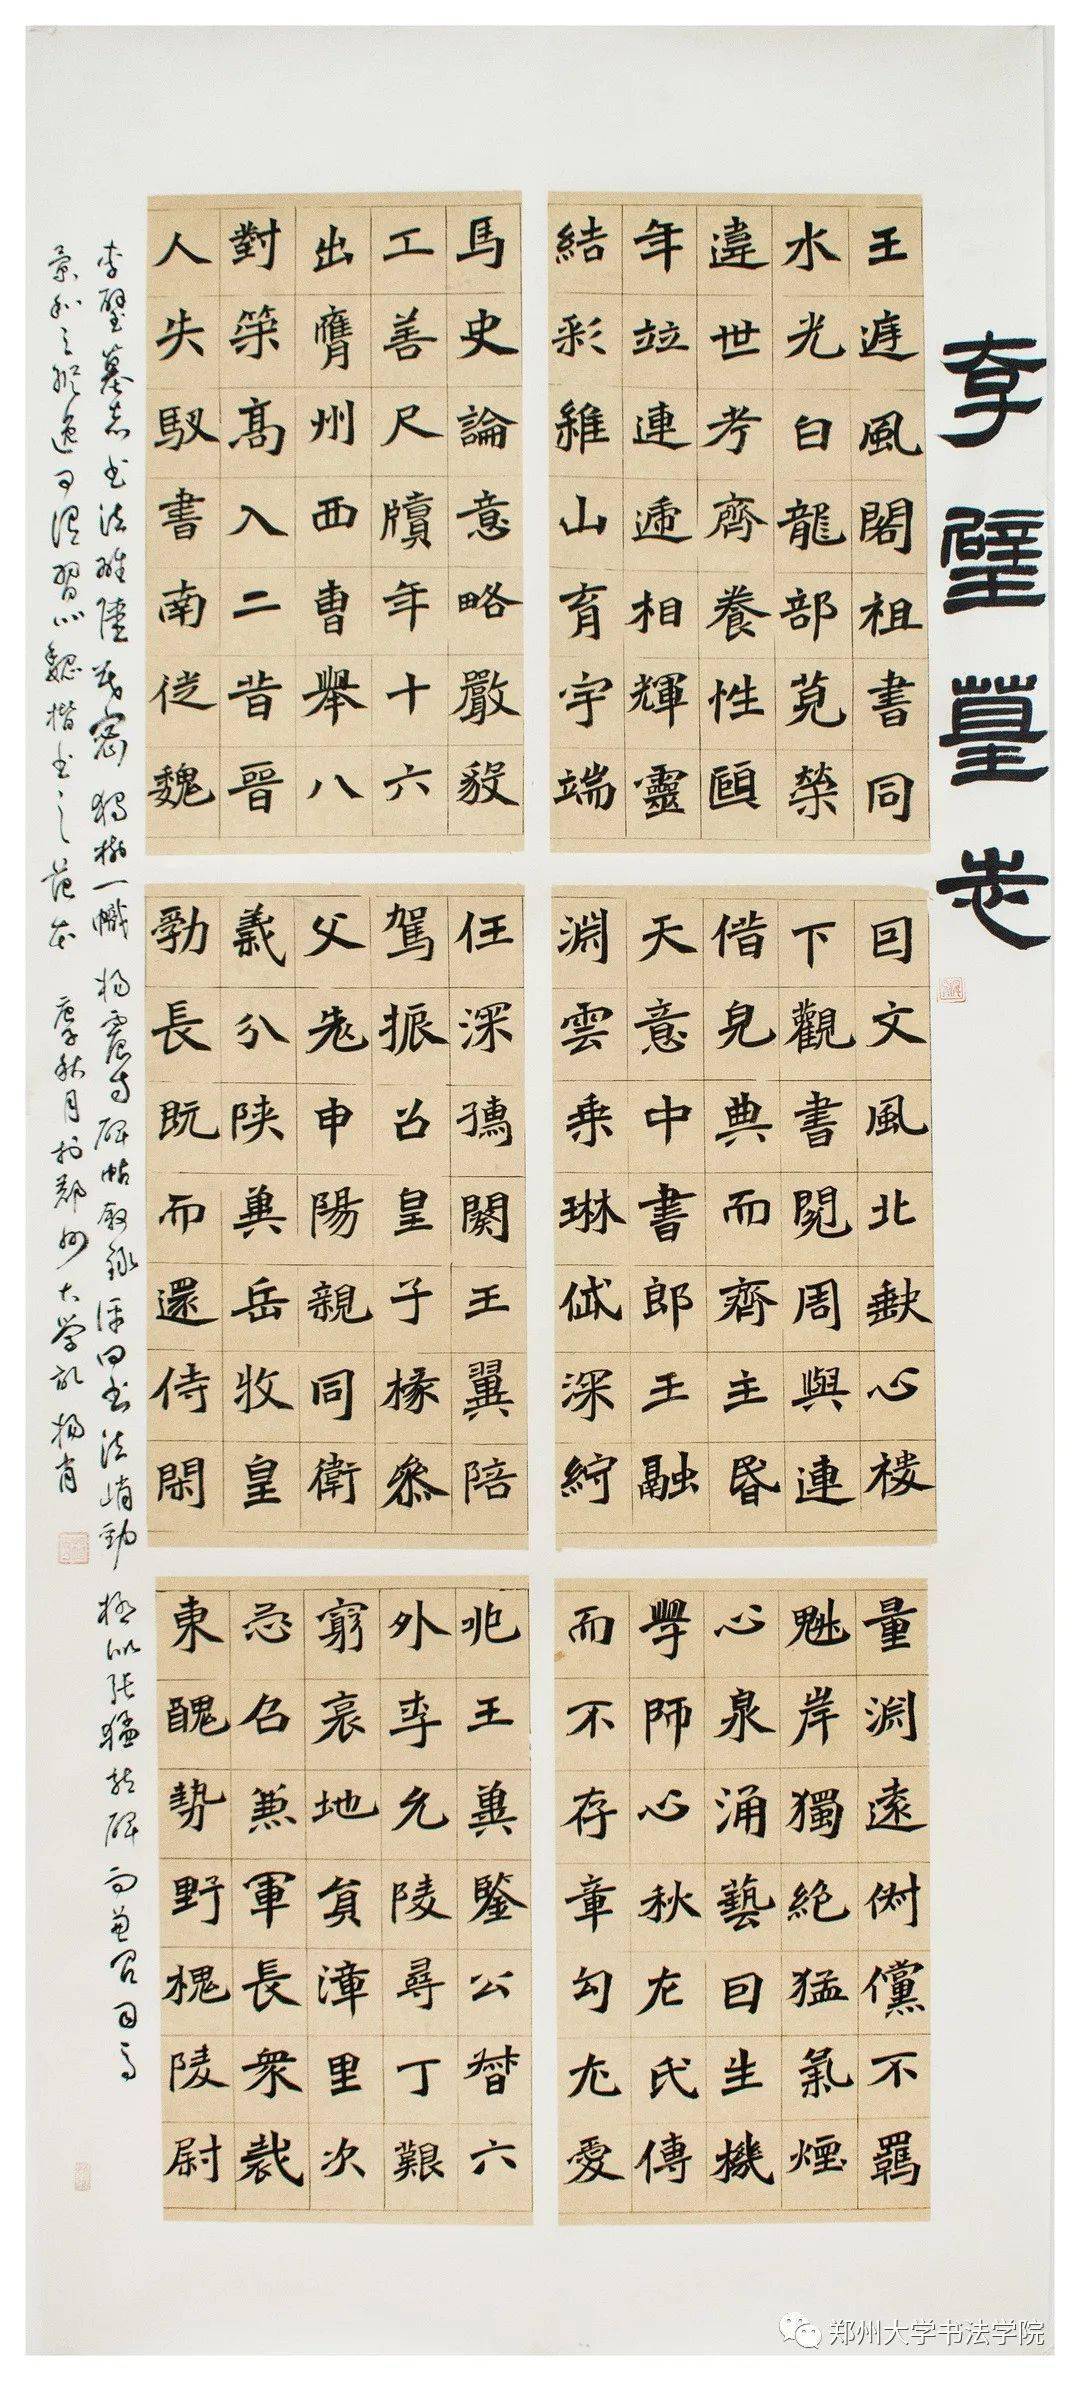 李璧墓志
王遊風閣祖書同
水光白龍部莧榮
違世考齊養性頤
年竝連遞相輝靈
結彩維山育宇端
馬史論意略嚴毅
工善尺牘年十六
出膺州西曹舉八
對策高入二昔晉
人失馭書南徙魏
回文風北缺心棲
下觀書閲周與連
借見典而齊主昏
天意中書郎王融
淵雲乘琳岱深紵
任深 闕王翼陪
駕振召皇子掾參
父老申陽親同衛
義分陝冀岳牧皇
勃長既而還侍閑
量淵遠倜儻不羈
魁岸獨絶猛氣煙
心泉涌藝曰生機
學師心秋左氏傳
而不存章勾尤愛
兆王冀鑒公督六
外李允陵尋丁艱
窮哀地負漳里次
忽召兼軍長衆裁
東醜勢野槐陵尉
李璧墓志书法雖 密 獨樹一幟 楊震方碑帖叙录评曰书法峭勁 極似张猛龙碑而兼 司马
景和之纵逸可谓習小魏楷书之范本 庚子秋月於鄭州大学 杨肖
郑州大学书法学院